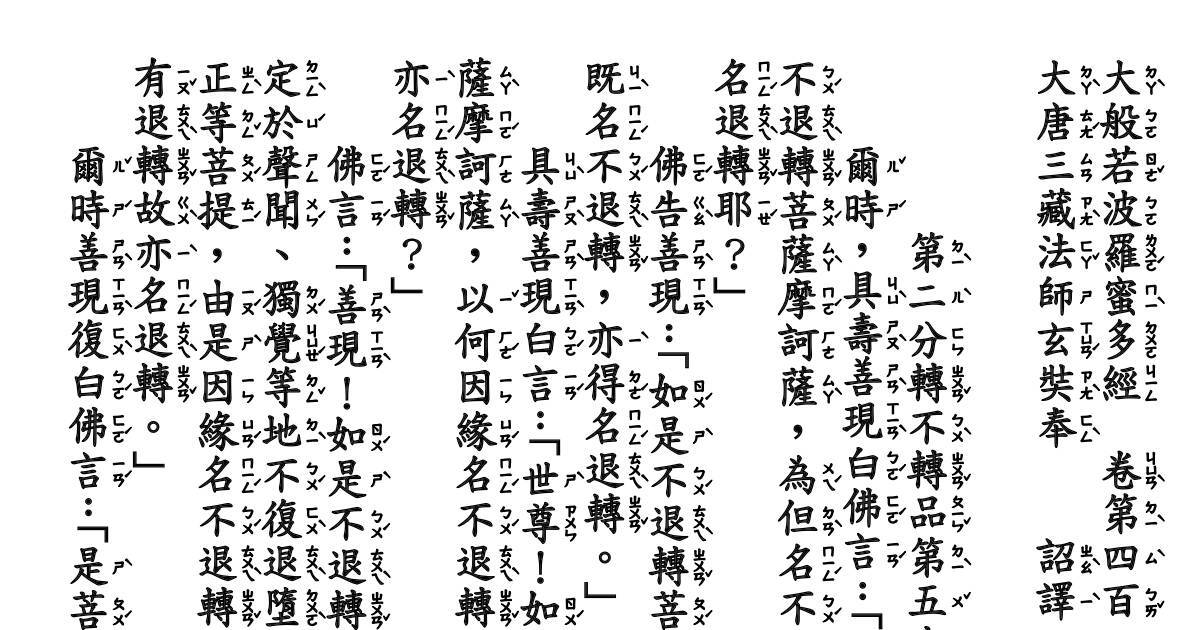 大般若波羅蜜多經　卷第四百
大唐三藏法師玄奘奉　　詔譯
第二分轉不轉品第五
爾時，具壽善現白佛言：「
不退轉菩薩摩訶薩，為但名不
名退轉耶？」
佛告善現：「如是不退轉菩
既名不退轉，亦得名退轉。」
具壽善現白言：「世尊！如
薩摩訶薩，以何因緣名不退轉
亦名退轉？」
佛言：「善現！如是不退轉
定於聲聞、獨覺等地不復退墮
正等菩提，由是因緣名不退轉
有退轉故亦名退轉。」
爾時善現復白佛言：「是菩